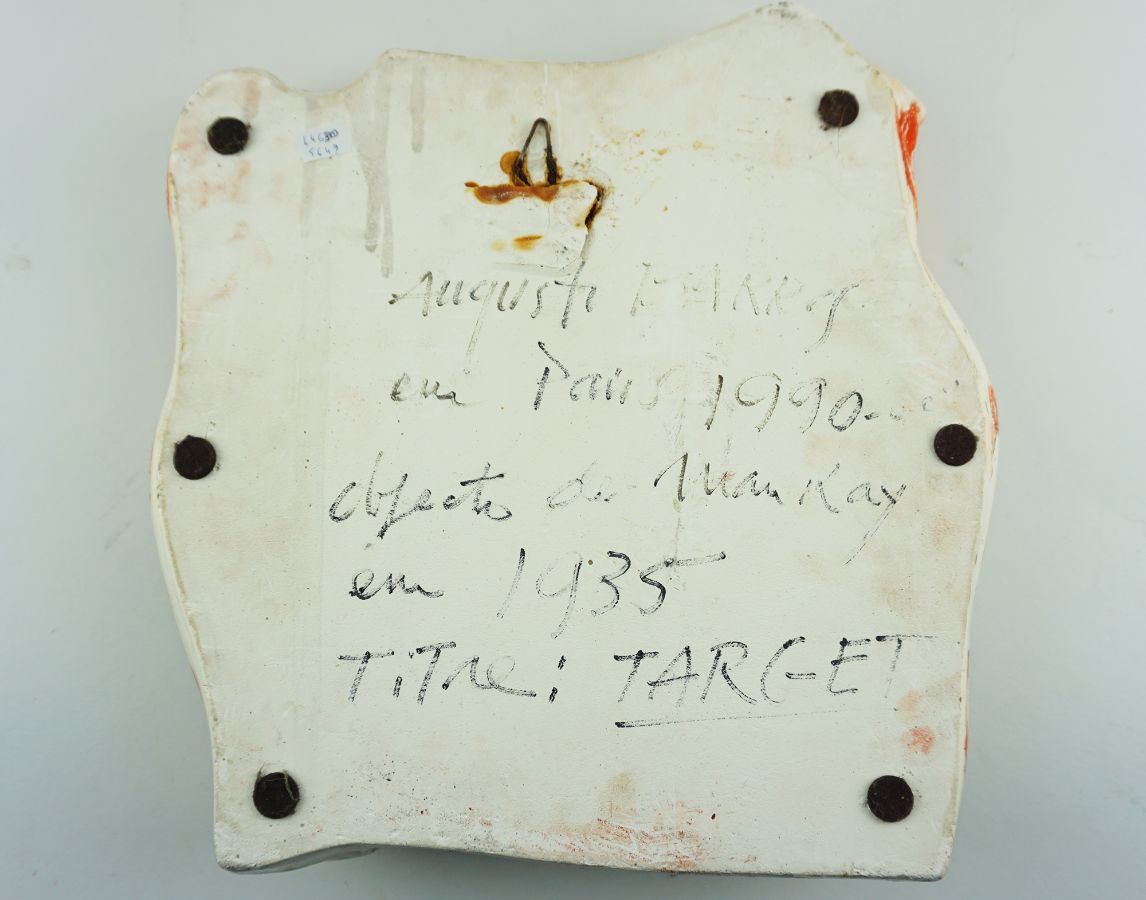 Augusto BARROS
em Paris 1990...
objecto de Man Ray
em 1935
TiTre: TARGET